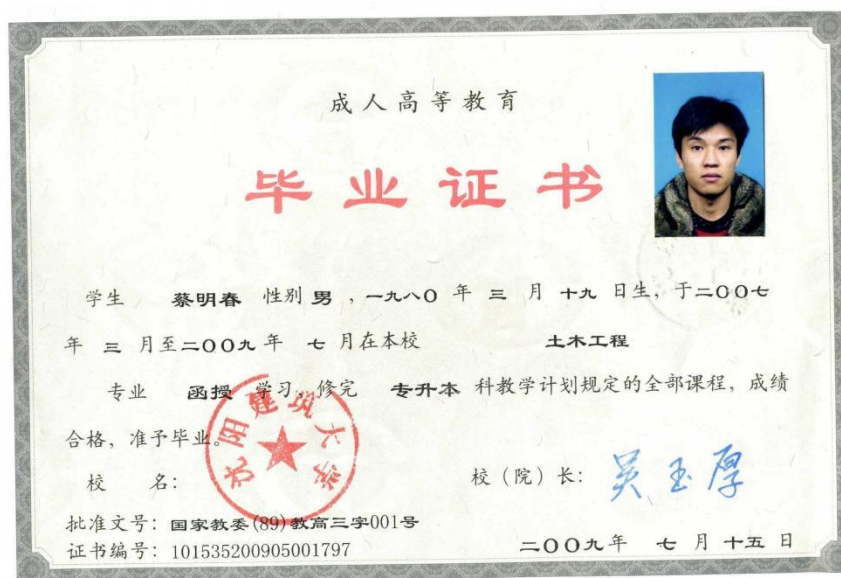 成人高等教育
毕业证书
学生 蔡明春 性别 男，一九八〇年 三 月 十九 日生，于二〇〇七
年 三 月至二〇〇九年 七 月在本校 土木工程
专业 函授 学习，修完 专升本 科教学计划规定的全部课程，成绩
合格，准予毕业。
沈阳建筑大学
校 名： 校（院）长：吴玉厚
批准文号：国家教委(89)教高三字001号
证书编号：101535200905001797
二〇〇九年 七 月 十五 日